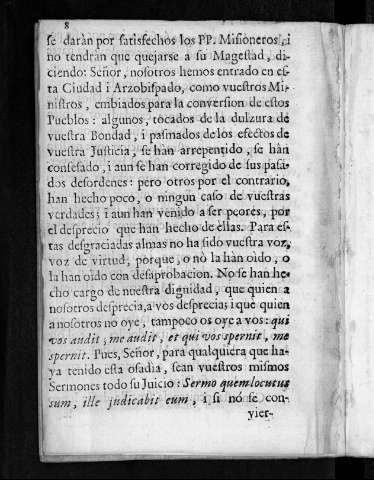 8
se daràn por satisfechos los PP. Misioneros, i
no tendràn que quejarse a su Magestad, di-
ciendo: Señor, nosotros hemos entrado en es-
ta Ciudad i Arzobispado, como vuestros Mi-
nistros, embiados para la conversion de estos
Pueblos: algunos, tocados de la dulzura de
vuestra Bondad, i pasmados de los efectos de
vuestra Justicia, se han arrepentido, se hàn
confesado, i aun se han corregido de sus pasa-
dos desordenes: pero otros por el contrario,
han hecho poco, o ningun caso de vuestras
verdades; i aun han venido a ser peores, por
el desprecio que han hecho de ellas. Para es-
tas desgraciadas almas no ha sido vuestra voz,
voz de virtud, porque, o nò la han oìdo, o
la han oìdo con desaprobacion. No se han he-
cho cargo de nuestra dignidad, que quien a
nosotros desprecia, a vos desprecia; i que quien
a nosotros no oye, tampoco os oye a vos: qui
vos audit, me audit, et qui vos spernit, me
spernit. Pues, Señor, para qualquiera que ha-
ya tenido esta osadìa, sean vuestros mismos
Sermones todo su Juicio: Sermo quem locutus
sum, ille judicabit eum, i si nó se con-
vier-